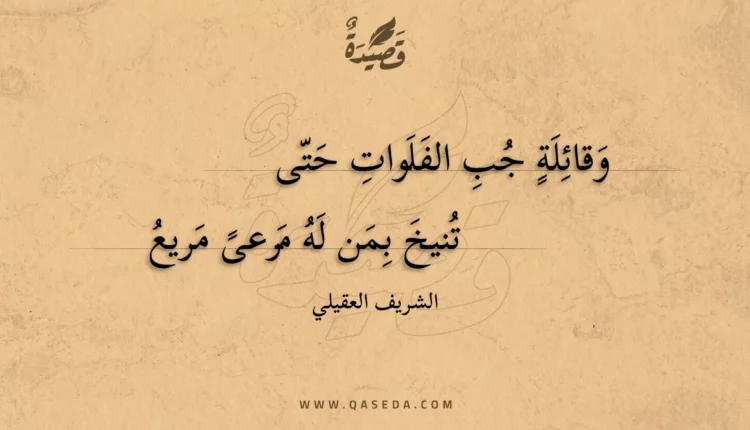 قَصِيدَةٌ
وَقائِلَةٍ جُبِ الفَلَواتِ حَتّى
تُنيخَ بِمَن لَهُ مَرعىً مَريعُ
الشريف العقيلي
WWW.QASEDA.COM